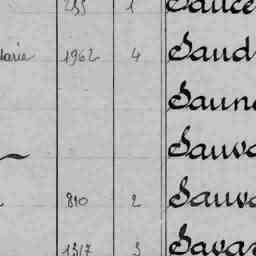 255 1 Sauce
Marie 1962 4 Saud
Saun
Sauva
810 2 Sauva
1317 3 Savar